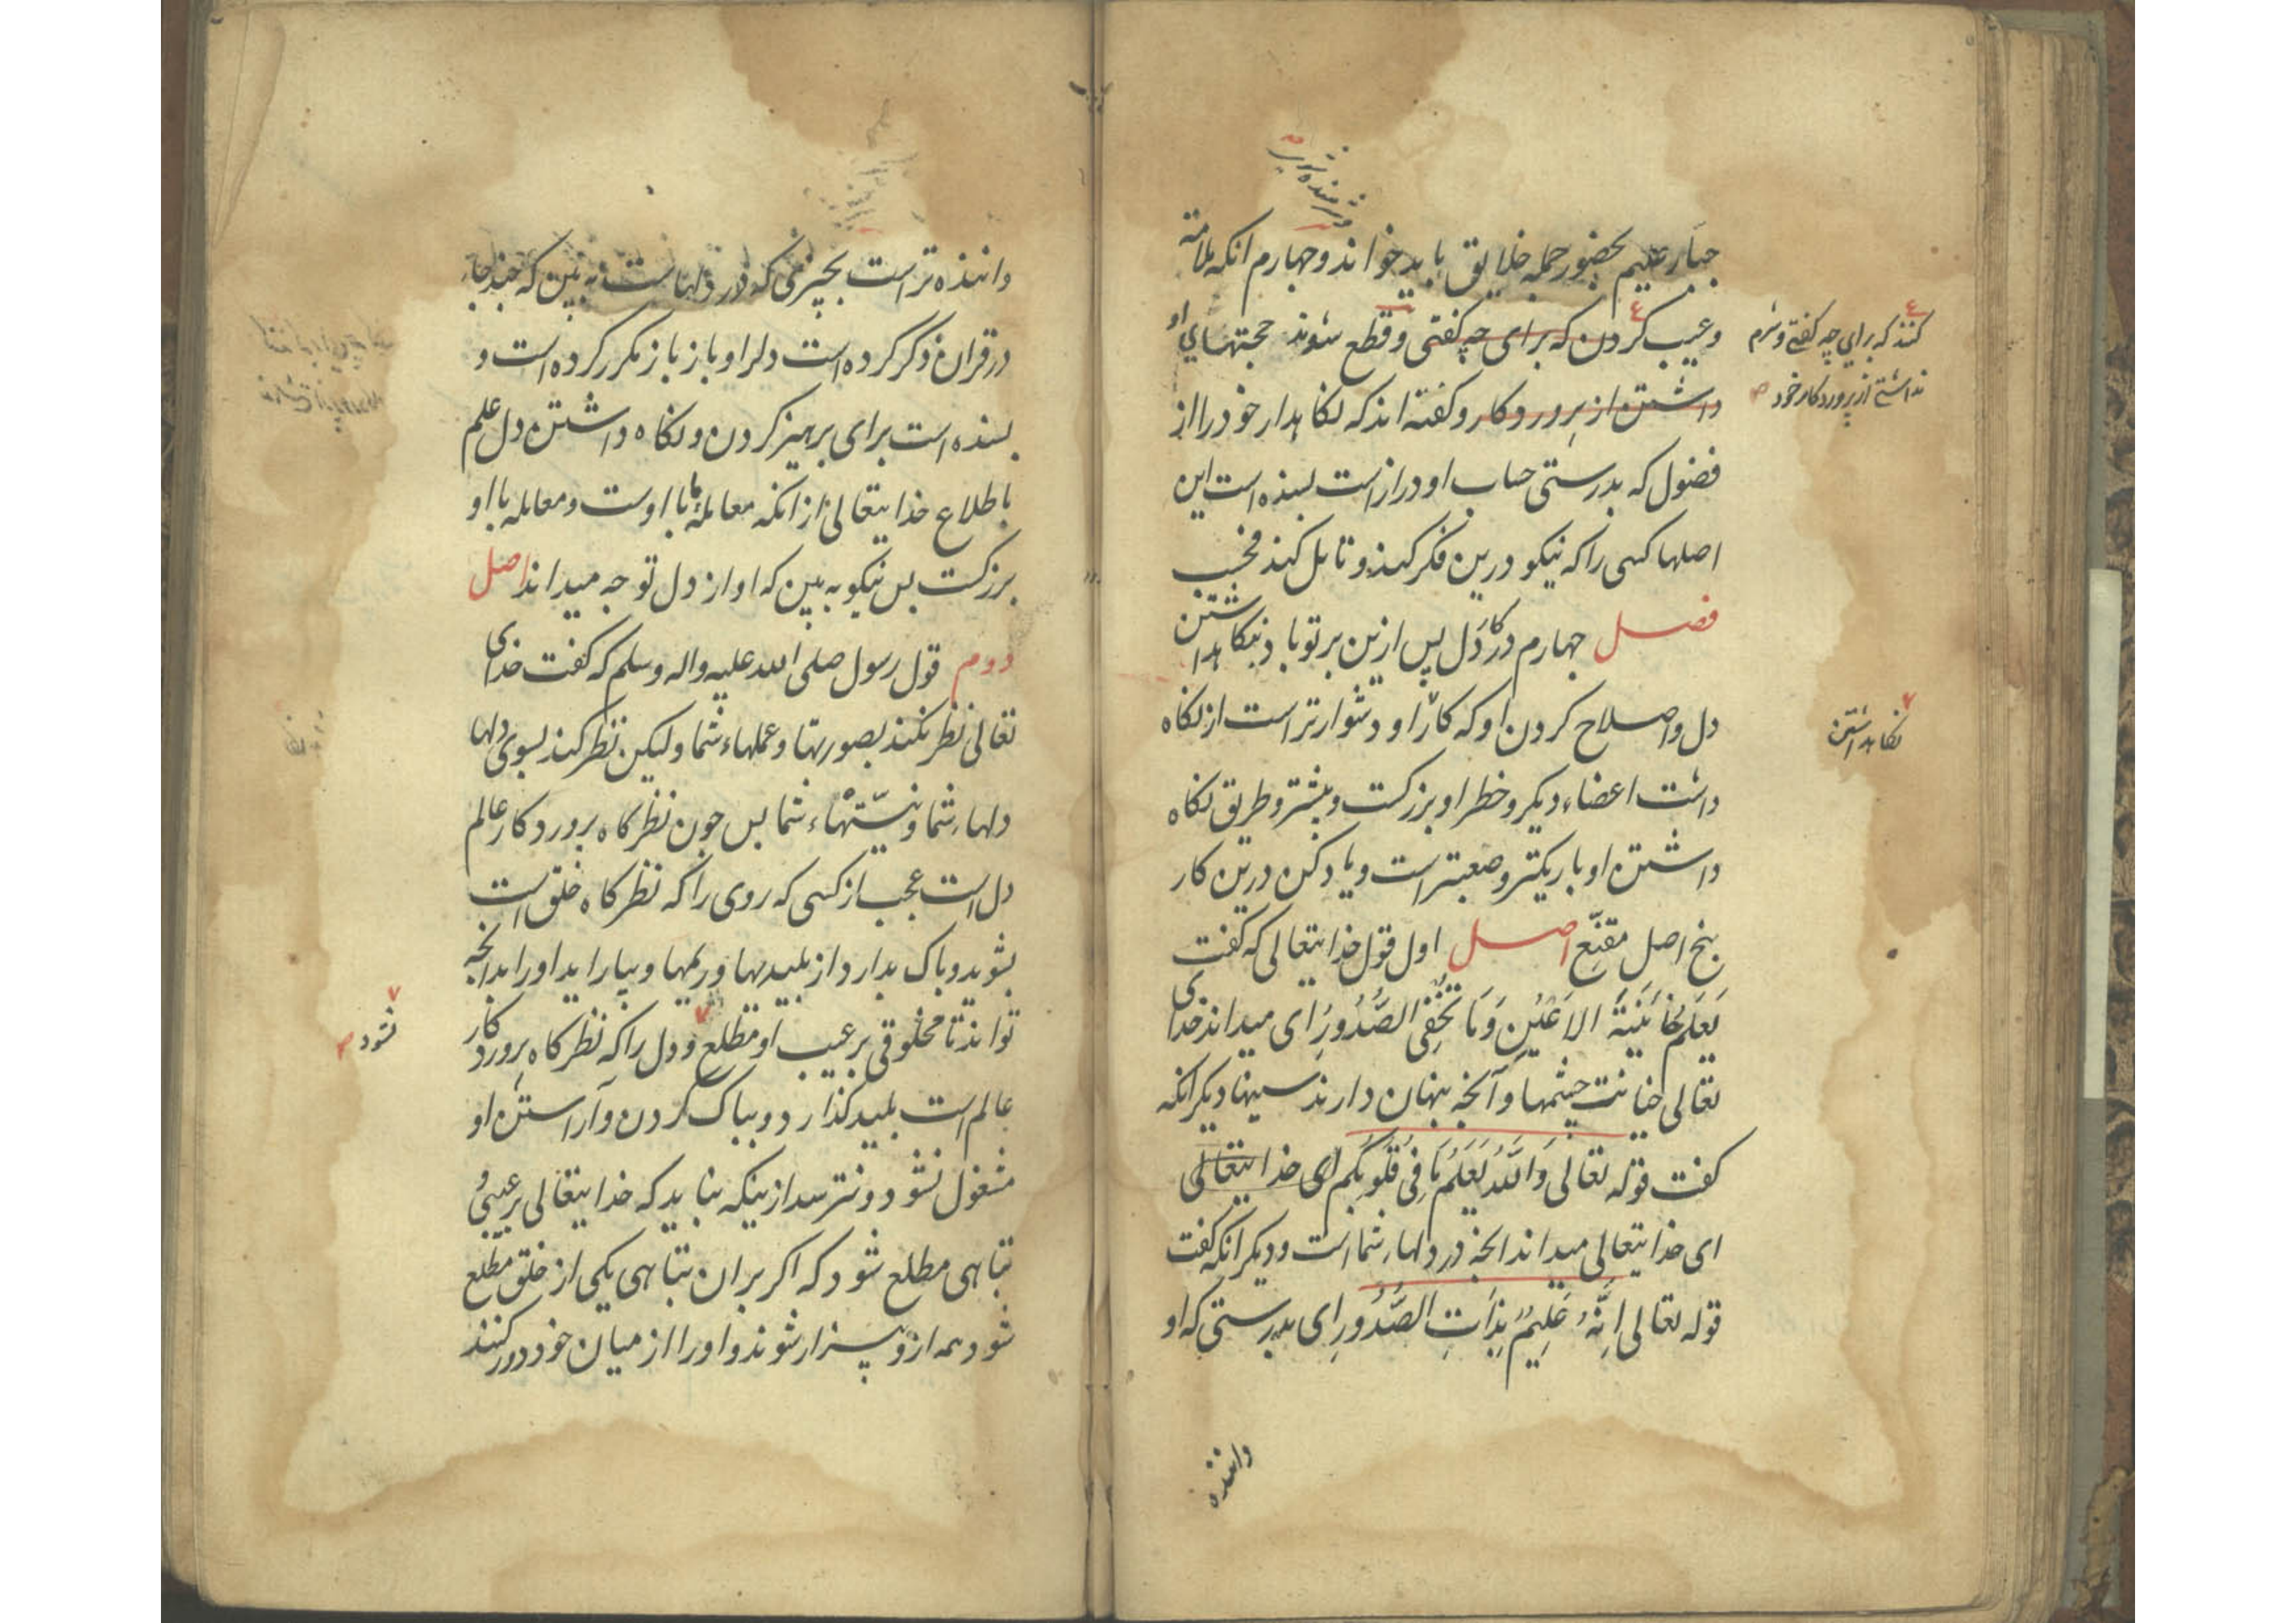 شرمنده شوند
جبار علیم بحضور جمله خلایق باید خواند و چهارم انکه ملامة
وعیب کردن که برای چه کفتی وقطع شوند حجتهای او
داشتن از پروردکار وکفته اند که نکاهدار خود را از
فضول که بدرستی حساب او دراز است بسنده است این
اصلها کسی را که نیکو درین فکر کند و تامل کند فحسب
فصل چهارم در کار دل پس ازین بر تو باد نیکاهداشتن
دل واصلاح کردن او که کار او دشوارتر است از نکاه
داشت اعضاء دیکر وخطر او بزرکست وبیشتر وطریق نکاه
داشتن او باریکتر وصعبتر است ویاد کن درین کار
پنج اصل مقنع اصل اول قول خدایتعالی که کفت
یَعْلَمُ خَائِنَةَ الاَعْیُنِ وَمَا تُخْفِی الصُّدُورُ ای میداند خدای
تعالی خیانت چشمها وآنچه پنهان دارند سینها دیکر انکه
کفت قوله تعالی وَاللّٰهُ یَعْلَمُ مَا فِی قُلُوبِکُم ای خدایتعالی
ای خدایتعالی میداند انچه در دلهاء شما است ودیکر انکه کفت
قوله تعالی اِنَّهُ عَلِیمٌ بِذَاتِ الصُّدُورِ ای بدرستی که او
داننده
کنند که برای چه کفتی وشرم
نداشتی از پروردکار خود
نکاهداشتن
داننده تر است بچیزی که در دلها است به بین که چند جاء
در قران ذکر کرده است دلرا و باز باز مکرر کرده است و
بسنده است برای پرهیز کردن ونکاه داشتن دل علم
باطلاع خدایتعالی از انکه معاملهٔ ما با اوست ومعامله با او
بزرکست پس نیکو به بین که او از دل تو چه میداند اصل
دوم قول رسول صلی الله علیه واله وسلم که کفت خدای
تعالی نظر نکند بصورتها وعملهاء شما ولیکن نظر کند بسوی دلها
دلهاء شما ونیتهاء شما پس چون نظرکاه پروردکار عالم
دل است عجب از کسی که روی را که نظرکاه خلق است
بشوید وپاک بدارد از پلیدیها وریمها وبیاراید اورا بدانچه
تواند تا مخلوقی بر عیب او مطلع ودل را که نظرکاه پروردکار
عالم است پلید کذارد وبپاک کردن وآراستن او
مشغول نشود ونترسد ازینکه بباید که خدایتعالی بر عیبی و
تباهی مطلع شود که اکر بران تباهی یکی از خلق مطلع
شود همه ازو بیزار شوند واورا از میان خود دور کنند
نشود